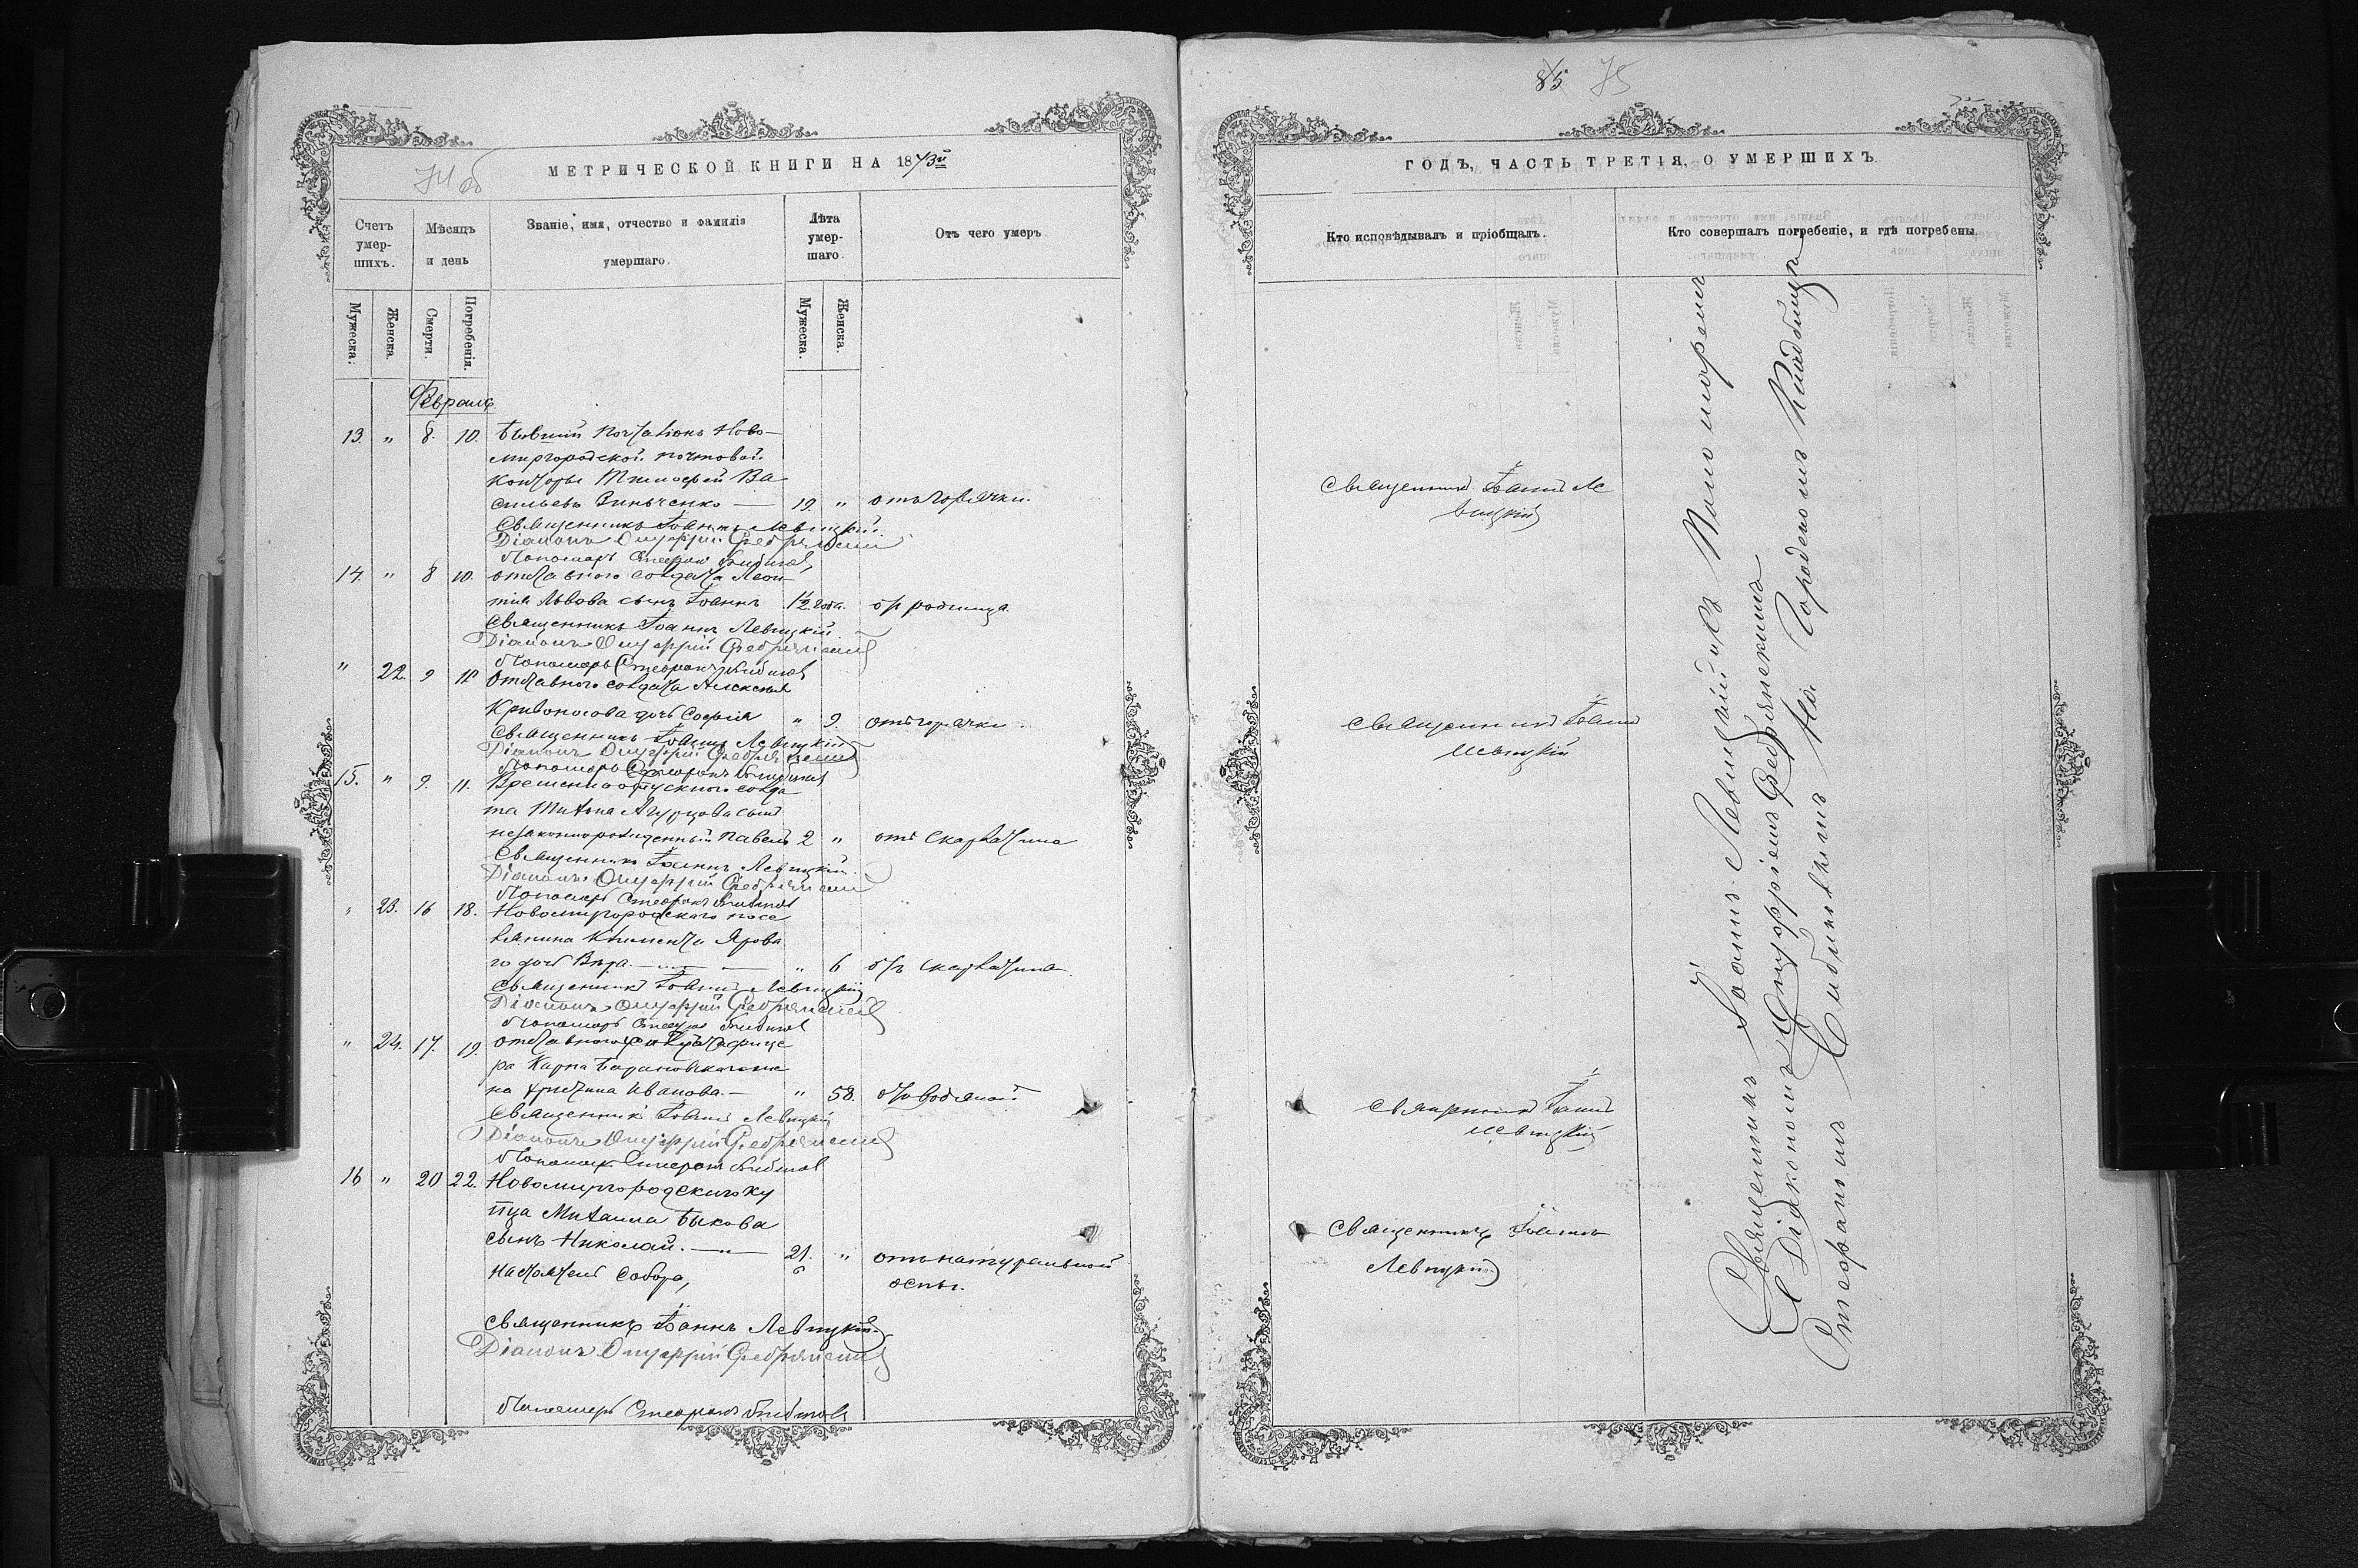 74 об
МЕТРИЧЕСКОЙ КНИГИ НА 1873й
Счетъ умер-шихъ.
Мѣсяцъ и день
Званіе, имя, отчество и фамилія умершаго.
Лѣта умер-шаго.
Отъ чего умеръ
Мужеска.
Женска.
Смерти.
Погребенія.
Мужеска.
Женска.
Февраль.
13. " 8. 10. Бывшій почталіонъ Ново-
миргородской почтовой
конторы Тимофей Ва
сильевъ Зинченко — 19. " отъ горячки.
Священникъ Іоаннъ Левицкій.
Діаконъ Онуфрій Серебрянскій
Пономарь Стефанъ
14. " 8 10. отставного солдата Леон-
тія Львова сынъ Іоаннъ 1½ года. отъ родимца
Священникъ Іоаннъ Левицкій
Діаконъ Онуфрій Серебрянскій
Пономарь Стефанъ
" 22. 9 11 Отставного солдата Алексѣя
Кривоносова дочь Софія " 9. отъ горячки.
Священникъ Іоаннъ Левицкій
Діаконъ Онуфрій Серебрянскій
Пономарь Стефанъ
15. " 9. 11. Временноотпускного солда
та Титова сынъ
незаконнорожденный Павелъ 2 " отъ скарлатина
Священникъ Іоаннъ Левицкій
Діаконъ Онуфрій Серебрянскій
Пономарь Стефанъ
" 23. 16 18. Новомиргородскаго посе
лянина Климента Ярова
го дочь Вѣра. — " 6 отъ скарлатина
Священникъ Іоаннъ Левицкій
Діаконъ Онуфрій Серебрянскій
Пономарь Стефанъ
" 24. 17. 19. отставного унтеръ офице
ра Карпа Барановскаго же
на Христина Иванова. — " 58. отъ водяной
Священникъ Іоаннъ Левицкій
Діаконъ Онуфрій Серебрянскій
Пономарь Стефанъ
16 " 20 22. Новомиргородскаго ку
пца Михаила Быкова
сынъ Николай. — 21. " отъ натуральной
оспы.
Настоятель Собора,
Священникъ Іоаннъ Левицкій
Діаконъ Онуфрій Серебрянскій
Пономарь Стефанъ
85 75
ГОДЪ, ЧАСТЬ ТРЕТІЯ, О УМЕРШИХЪ
Кто исповѣдывалъ и пріобщалъ.
Кто совершалъ погребеніе, и гдѣ погребены
Священникъ Іоаннъ Ле
вицкій
Священникъ Іоаннъ
Левицкій
Священникъ Іоаннъ
Левицкій
Священникъ Іоаннъ
Левицкій
Священникъ Іоаннъ Левицкій съ Пономаремъ
Діакономъ Онуфріемъ Серебрянскимъ
Стефаномъ На Городскомъ Кладбищѣ